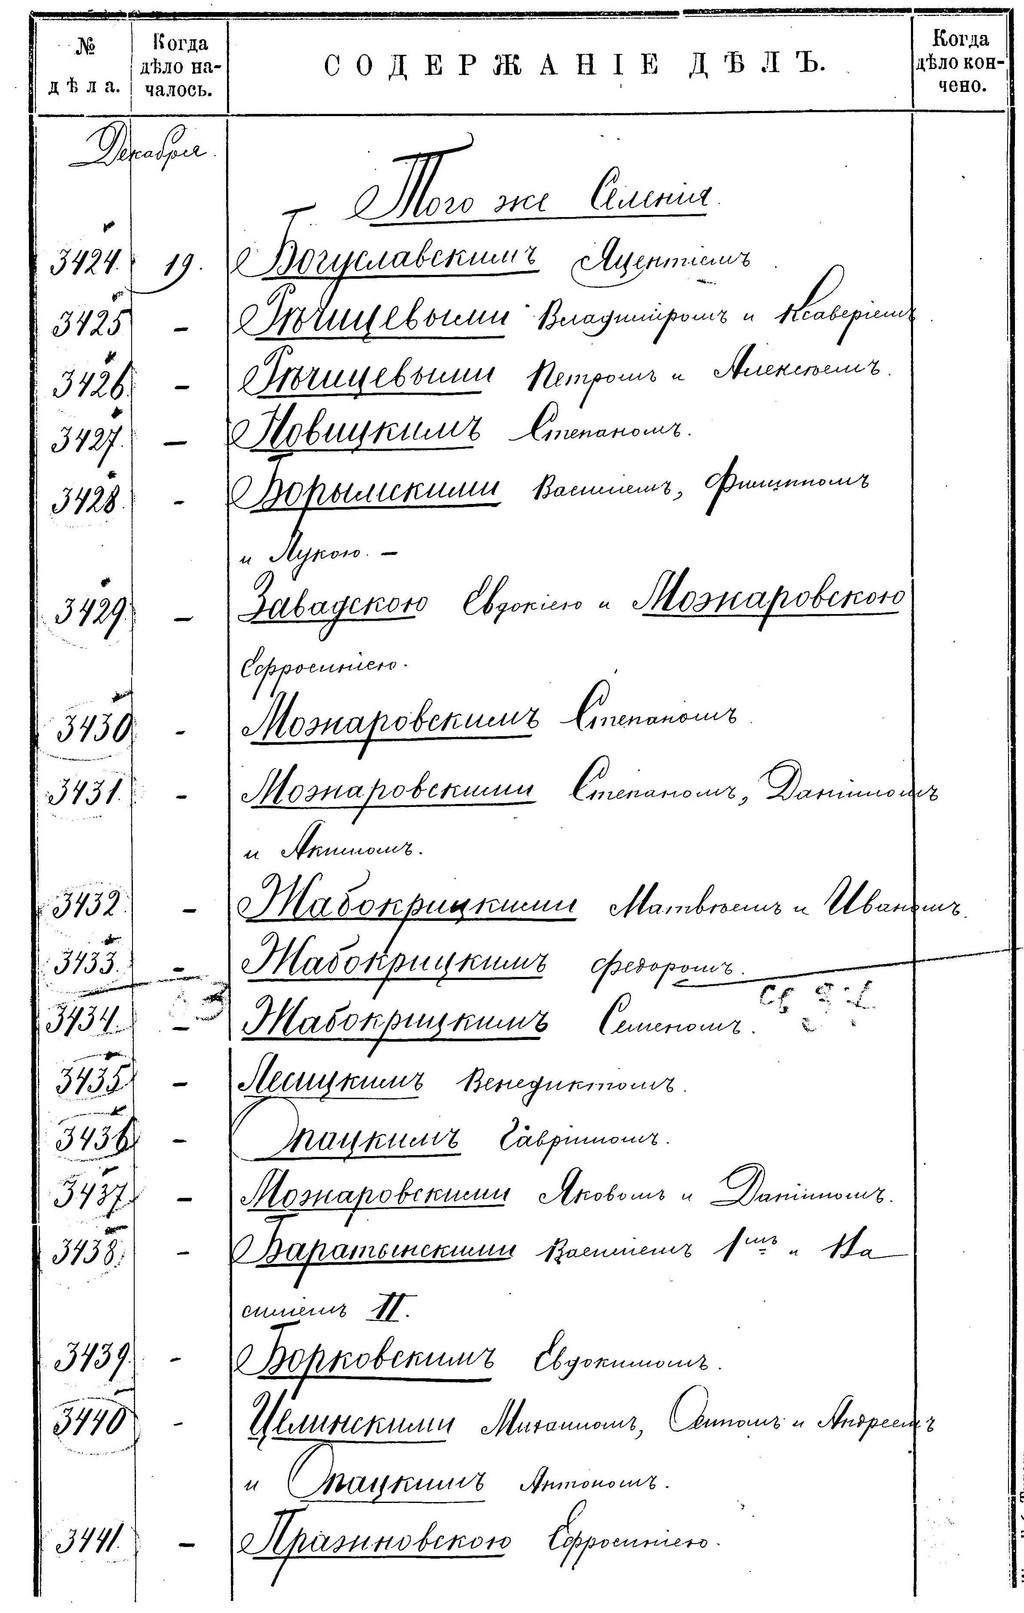 № дѣла. Когда дѣло началось. СОДЕРЖАНІЕ ДѢЛЪ. Когда дѣло кончено.
Декабря.
Того же Селенія.
3424. 19. Богуславскимъ Яцентіемъ
3425 - Рѣчицевыми Владиміромъ и Ксаверіемъ
3426. - Рѣчицевыми Петромъ и Алексѣемъ.
3427. - Новицкимъ Степаномъ.
3428. - Борымскими Василіемъ, Филиппомъ
и Лукою. -
3429. - Завадскою Евдокіею и Можаровскою
Ефросиніею.
3430 - Можаровскимъ Степаномъ.
3431. - Можаровскими Степаномъ, Даніиломъ
и Акимомъ.
3432. - Жабокрицкими Матвѣемъ и Иваномъ.
3433. - Жабокрицкимъ Федоромъ.
3434. - Жабокрицкимъ Семеномъ.
3435 - Лесицкимъ Венедиктомъ.
3436 - Опацкимъ Гавріиломъ.
3437 - Можаровскими Яковомъ и Даніиломъ.
3438. - Баратынскими Василіемъ 1мъ и Ва
силіемъ II.
3439. - Борковскимъ Евдокимомъ.
3440 - Целинскими Михаиломъ, Осипомъ и Андреемъ
и Опацкимъ Антономъ.
3441. - Пражновскою Ефросиніею.